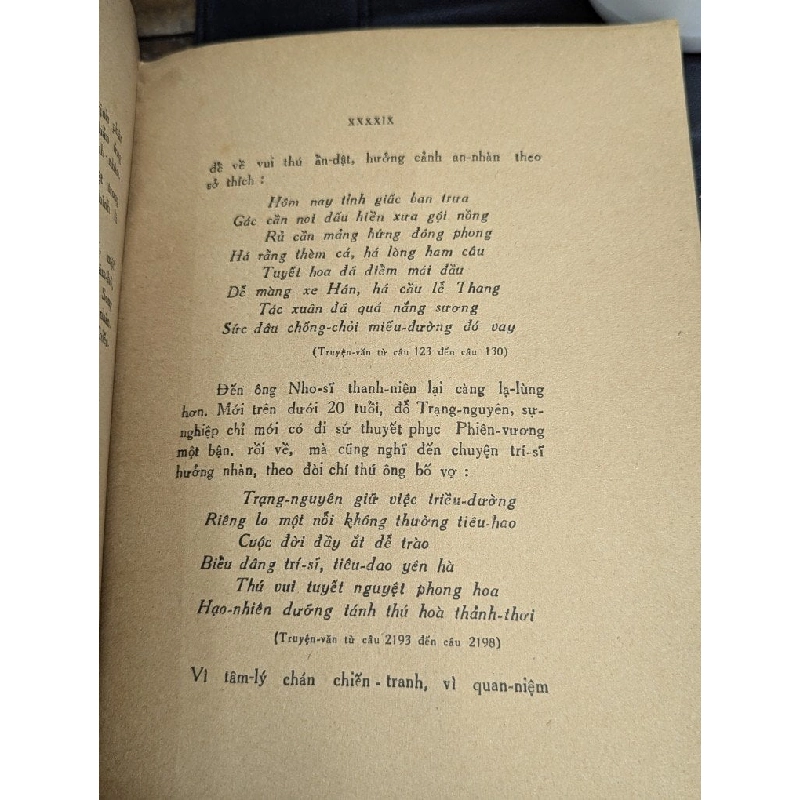 XXXXIX
để về vui thú ẩn-dật, hưởng cảnh an-nhàn theo
sở thích :
Hôm nay tỉnh giấc ban trưa
Gác cần nơi dấu hiền xưa gội nồng
Rủ cần mảng hứng đông phong
Há rằng thèm cá, há lòng ham câu
Tuyết hoa đã điểm mái đầu
Dễ màng xe Hán, há cầu lễ Thang
Tác xuân đã quá nắng sương
Sức đâu chống-chỏi miếu-đường đó vay
(Truyện-văn từ câu 123 đến câu 130)
Đến ông Nho-sĩ thanh-niên lại càng lạ-lùng
hơn. Mới trên dưới 20 tuổi, đỗ Trạng-nguyên, sự-
nghiệp chỉ mới có đi sứ thuyết phục Phiên-vương
một bận, rồi về, mà cũng nghĩ đến chuyện trí-sĩ
hưởng nhàn, theo đòi chí thú ông bố vợ :
Trạng-nguyên giữ việc triều-đường
Riêng lo một nỗi không thường tiêu-hao
Cuộc đời đầy ắt dễ trào
Biểu dâng trí-sĩ, tiêu-dao yên hà
Thú vui tuyết nguyệt phong hoa
Hạo-nhiên dưỡng tánh thú hoà thảnh-thơi
(Truyện-văn từ câu 2193 đến câu 2198)
Vì tâm-lý chán chiến-tranh, vì quan-niệm